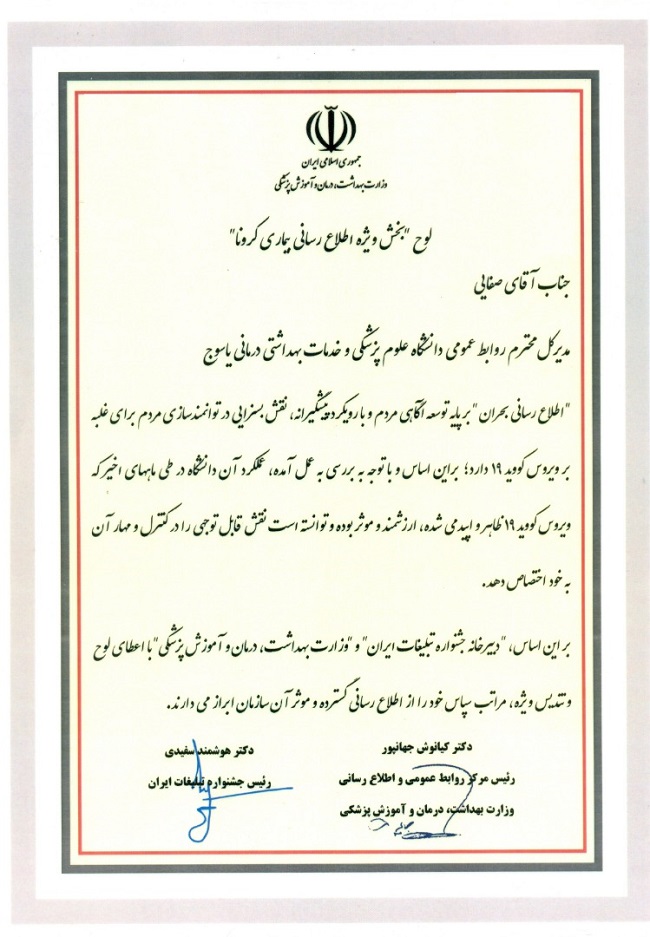 جمهوری اسلامی ایران
وزارت بهداشت، درمان و آموزش پزشکی
لوح "بخش ویژه اطلاع رسانی بیماری کرونا"
جناب آقای صفایی
مدیرکل محترم روابط عمومی دانشگاه علوم پزشکی و خدمات بهداشتی درمانی یاسوج
"اطلاع رسانی بحران" بر پایه توسعه آگاهی مردم و با رویکرد پیشگیرانه، نقش بسزایی در توانمندسازی مردم برای غلبه
بر ویروس کووید ۱۹ دارد؛ براین اساس و با توجه به بررسی به عمل آمده، عملکرد آن دانشگاه در طی ماههای اخیر که
ویروس کووید ۱۹ ظاهر و اپیدمی شده، ارزشمند و موثر بوده و توانسته است نقش قابل توجهی را در کنترل و مهار آن
به خود اختصاص دهد.
بر این اساس، "دبیرخانه جشنواره تبلیغات ایران" و "وزارت بهداشت، درمان و آموزش پزشکی" با اعطای لوح
و تندیس ویژه، مراتب سپاس خود را از اطلاع رسانی گسترده و موثر آن سازمان ابراز می دارند.
دکتر کیانوش جهانپور
رئیس مرکز روابط عمومی و اطلاع رسانی
وزارت بهداشت، درمان و آموزش پزشکی
دکتر هوشمند سفیدی
رئیس جشنواره تبلیغات ایران